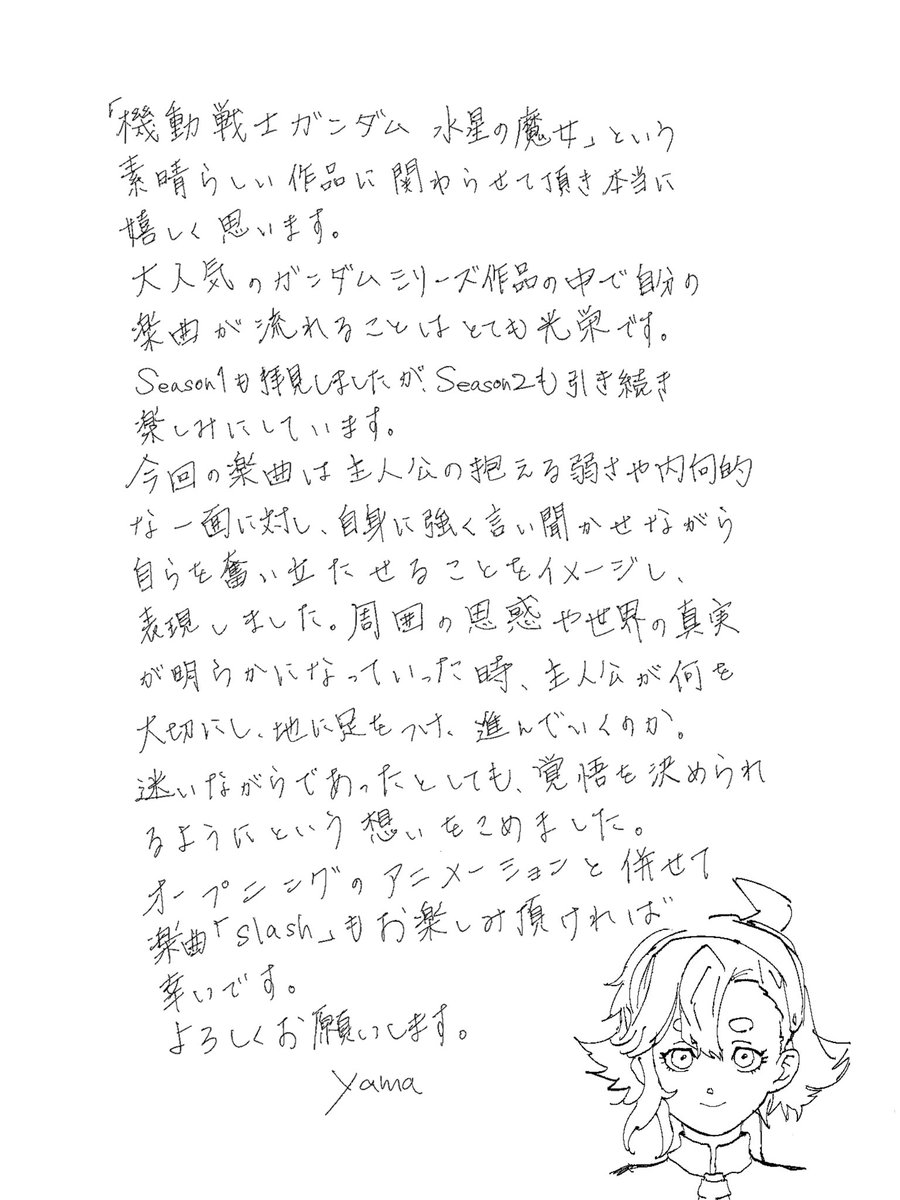 「機動戦士ガンダム 水星の魔女」という
素晴らしい作品に関わらせて頂き本当に
嬉しく思います。
大人気のガンダムシリーズ作品の中で自分の
楽曲が流れることはとても光栄です。
Season1も拝見しましたが、Season2も引き続き
楽しみにしています。
今回の楽曲は主人公の抱える弱さや内向的
な一面に対し、自身に強く言い聞かせながら
自らを奮い立たせることをイメージし、
表現しました。周囲の思惑や世界の真実
が明らかになっていった時、主人公が何を
大切にし、地に足をつけ、進んでいくのか。
迷いながらであったとしても、覚悟を決められ
るようにという想いをこめました。
オープニングのアニメーションと併せて
楽曲「slash」もお楽しみ頂ければ
幸いです。
よろしくお願いします。
yama